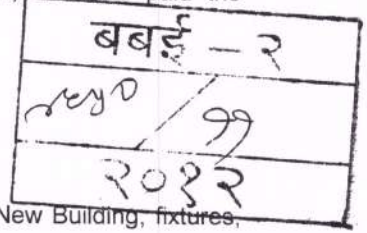 बबई – २
/ ११
२०१२
New Building, fixtures,